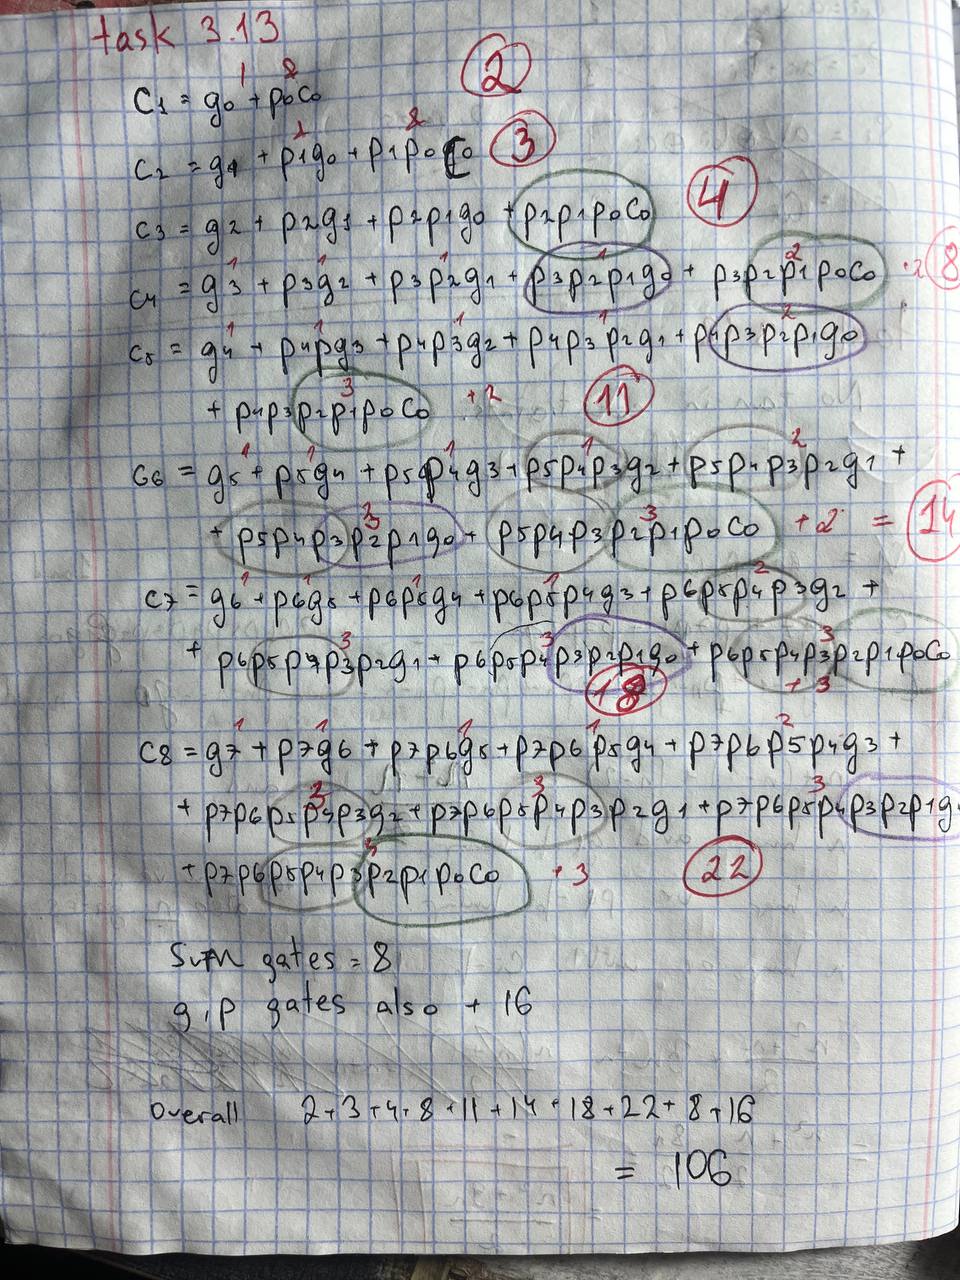 task 3.13
1 2
C1 = g0 + p0c0 2
1 2
C2 = g1 + p1g0 + p1p0c0 3
C3 = g2 + p2g1 + p2p1g0 + p2p1p0c0 4
1 1 1 1 2
C4 = g3 + p3g2 + p3p2g1 + p3p2p1g0 + p3p2p1p0c0 +2 8
1 1 1 1 2
C5 = g4 + p4pg3 + p4p3g2 + p4p3p2g1 + p4p3p2p1g0
3
+ p4p3p2p1p0c0 +2 11
1 1 1 1 2
C6 = g5 + p5g4 + p5p4g3 + p5p4p3g2 + p5p4p3p2g1 +
3
+ p5p4p3p2p1g0 + p5p4p3p2p1p0c0 +2 = 14
1 1 1 1 2
C7 = g6 + p6g5 + p6p5g4 + p6p5p4g3 + p6p5p4p3g2 +
3 3 3
+ p6p5p4p3p2g1 + p6p5p4p3p2p1g0 + p6p5p4p3p2p1p0c0
18 +3
1 1 1 1 2
C8 = g7 + p7g6 + p7p6g5 + p7p6p5g4 + p7p6p5p4g3 +
3 3
+ p7p6p5p4p3g2 + p7p6p5p4p3p2g1 + p7p6p5p4p3p2p1g
+ p7p6p5p4p3p2p1p0c0 +3 22
Sum gates = 8
g, p gates also + 16
Overall 2+3+4+8+11+14+18+22+8+16
= 106